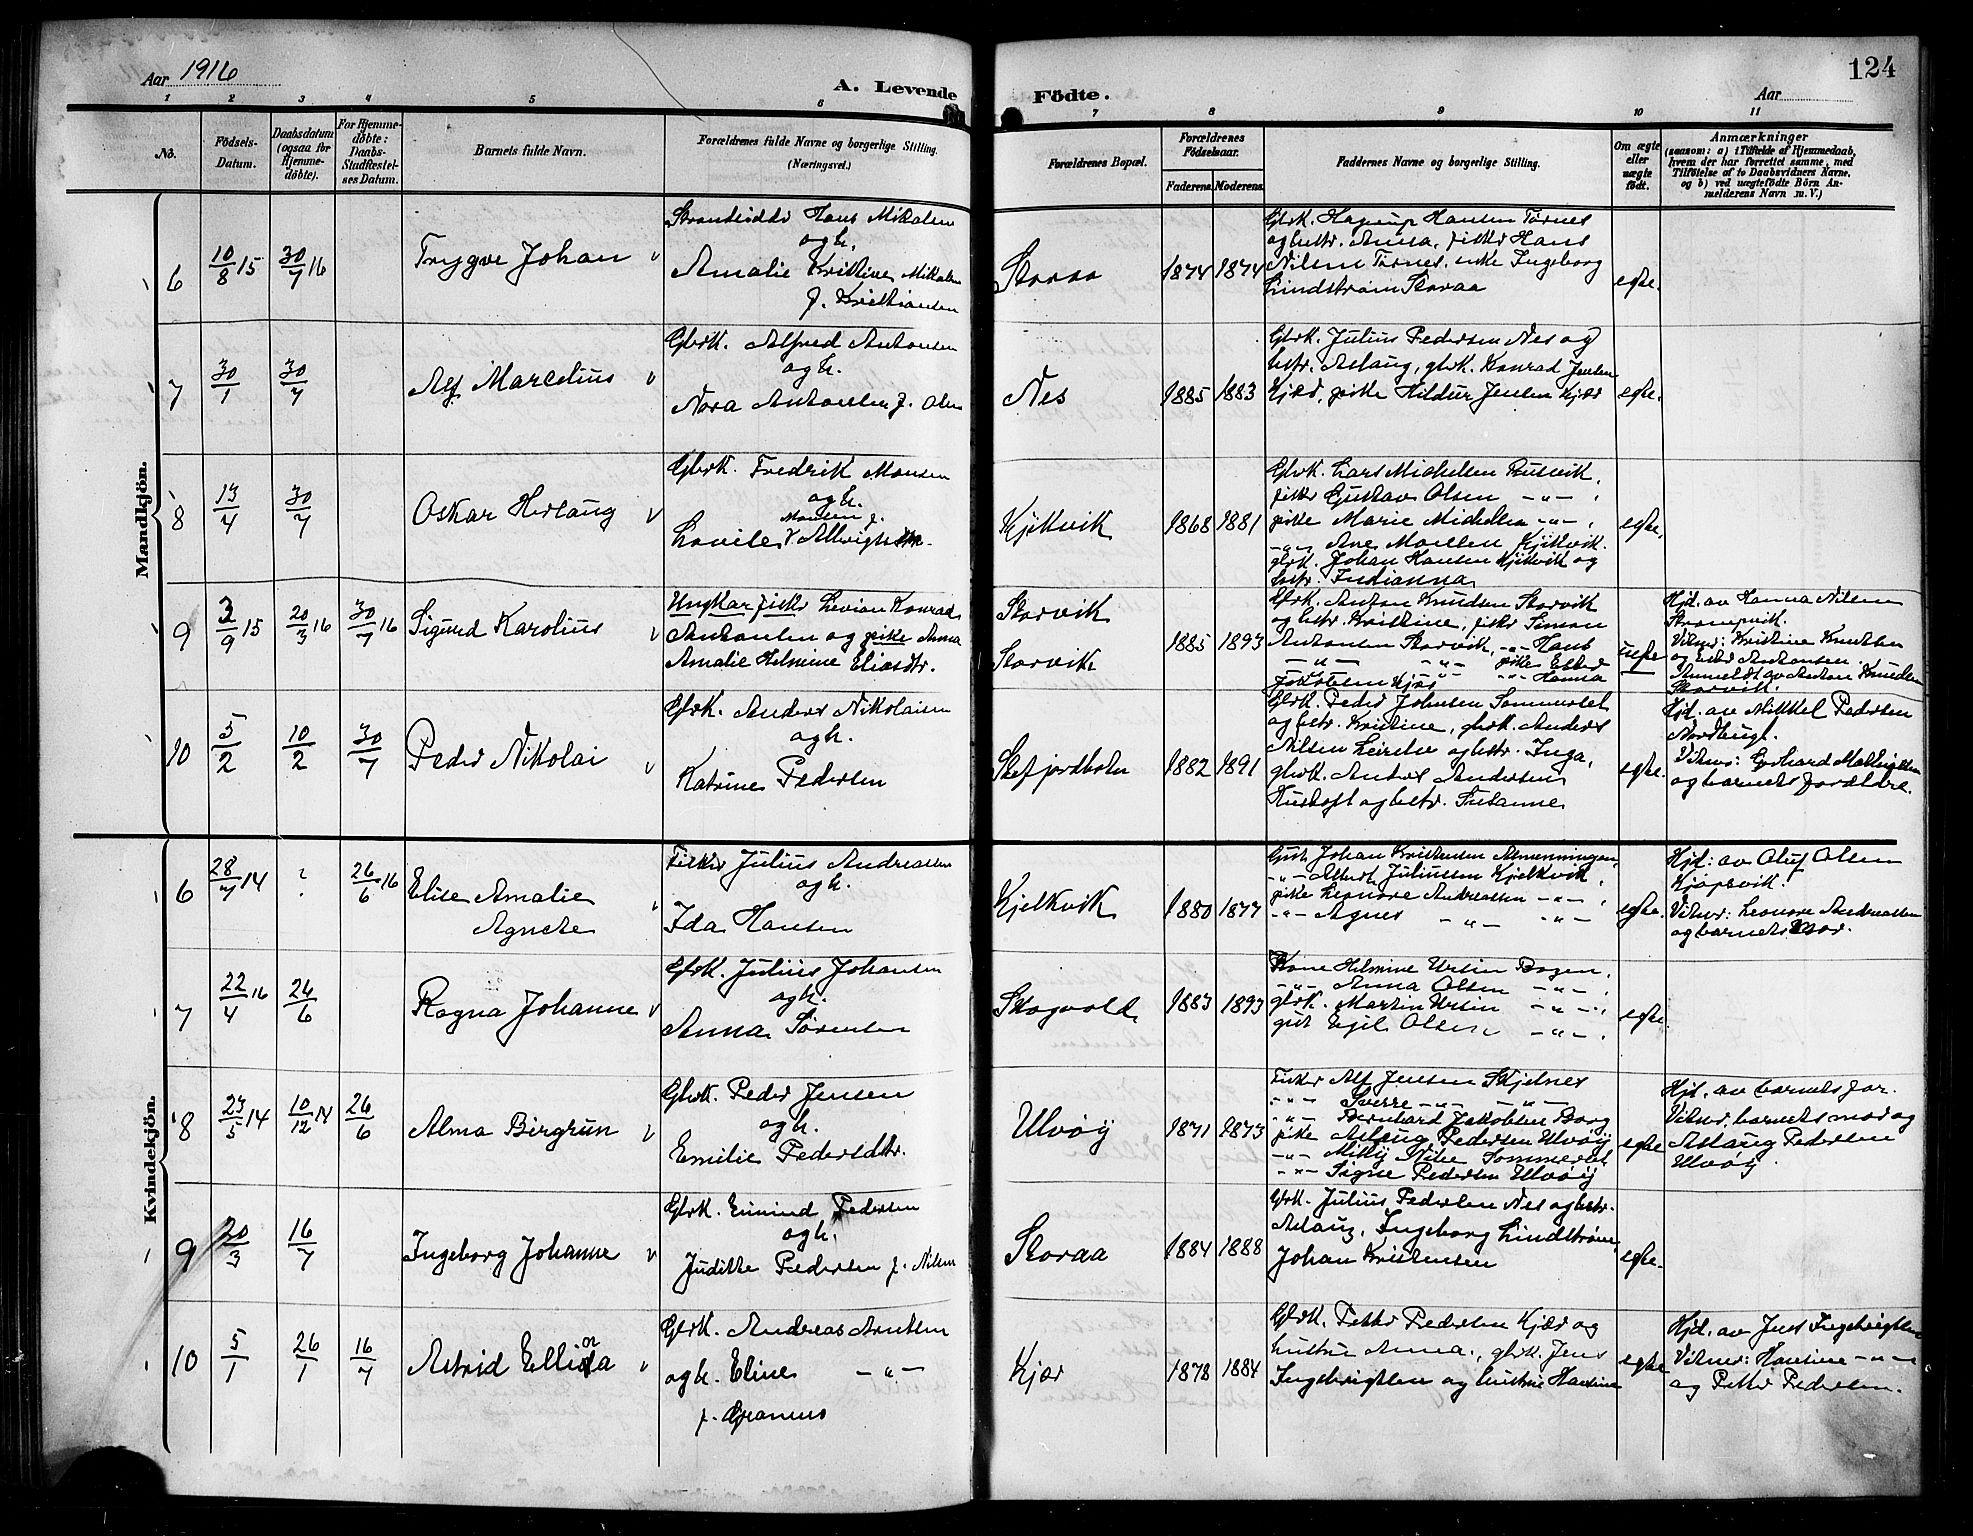 Aar 1916
A. Levende
Födte.
Aar
124
1 2 3 4 5 6 7 8 9 10 11
No.
Födsels-
Datum.
Daabsdatum
(ogsaa for
Hjemme-
döbte).
For Hjemme-
döbte:
Daabs-
Stadfæstel-
ses Datum.
Barnets fulde Navn.
Forældrenes fulde Navne og borgerlige Stilling.
(Næringsvei.)
Forældrenes Bopæl.
Forældrenes
Födselsaar.
Faderens. Moderens.
Faddernes Navne og borgerlige Stilling.
Om ægte
eller
uægte
født.
Anmærkninger
(saasom: a) i Tilfælde af Hjemmedaab,
hvem der har forrettet samme, med
Tilföielse af to Daabsvidners Navne,
og b) ved uægtefödte Börn An-
melderens Navn m. V.)
Mandkjön.
6
10/8 15
30/7 16
Trygve Johan
Hans Mikalsen
og h.
Amalie Kristine Mikalsen
f. Kristiansen
Storaa
1874 1874
Gbrk. Hagerup Hansen Tørnes
og hustr. Anna, fisker Hans
Nilsen Tørnes, enke Ingeborg
Lindstrøm Storaa
egte.
7
30/1
30/7
Alf Marcelius
Gbrk. Alfred Antonsen
og h.
Nora Antonsen f. Olsen
Nes
1885 1883
Gbrk. Julius Pedersen Nes og
hustr. Aslaug, gbrk. Konrad Jensen
Kjær, pike Hildur Jensen Kjær
egte.
8
13/4
30/7
Oskar Herlaug
Gbrk. Fredrik Monsen
og h.
Monsen f.
Lovise
Kjelkvik
1868 1881
Gbrk. Lars Mickelsen
fisker Gustav Olsen – " – ,
pike Marie Mickelsen – " – ,
– " – Ane Monsen Kjelkvik.
gbrk. Johan Hansen Kjelkvik og
hustr. Indianna
egte.
9
3/9 15
20/3 16
30/7 16
Sigurd Karolius
Ungkar fisker Levian Konrad
Antonsen og pike Anna
Amalie Helmine Eliasdtr.
Storvik
Storvik
1885 1893
Gbrk. Anton Knudsen Storvik
og hustr. Kristine, fisker Simon
Antonsen Storvik, – " – Hans
– " – – " – pike Ester
Kjær – " – Hanna
uegte
Hjd. av Hanna Nilsen
Vitner: Kristine Knudsen
og Ester Antonsen.
Anmeldt av Anton Knudsen
Storvik.
10
5/2
10/2
30/7
Peder Nikolai
Gbrk. Anders Nikolaisen
og h.
Katrine Pedersen
Skefjordbotn
1882 1891
Gbrk. Peder Johnsen Sommerset
og hustr. Kristine, gbrk. Anders
Nilsen Leirelv og hustr. Inga,
gbrk. Anders Andersen
og hustr. Susanne
egte.
Hjd. av Mikkel Pedersen
Nordbugt.
Vitner: Gerhard
og barnets forældre.
Kvindekjön.
6
28/7 14
?
26/6 16
Elise Amalie
Agnete
Fisker Julius Andreassen
og h.
Ida Hansen
Kjelkvik
1880 1877
Gut Johan Kristensen Almenningen,
– " – Albert Juliussen Kjelkvik,
pike Leonore Andreassen – " – ,
– " – Agnes – " – – " –
egte.
Hjd: av Oluf Olsen
Kjøpsvik.
Vitner: Leonore Andreassen
og barnets mor.
7
22/4 16
26/6
Ragna Johanne
Gbrk. Julius Johansen
og h.
Anna Sørensen
Skogvold
1883 1893
Kone Helmine Ursin Bogen,
– " – Anna Olsen – " – ,
gbrk. Martin Ursin – " – ,
gut Egil Olsen – " – .
egte
8
23/5 14
10/12 14
26/6
Alma Birgrun
Gbrk. Peder Jensen
og h.
Emilie Pedersdtr.
Ulvøy
1871 1873
Fisker Alf Jensen Skjelnes
– " – Sverre – " – – " –
– " – Bernhard Jakobsen Borg
pike Aslaug Pedersen Ulvøy
– " – Milly Sommerset
– " – Signe Pedersen Ulvøy
egte
Hjd. av barnets far.
Vitner, barnets mor og
Aslaug Pedersen
Ulvøy.
9
20/3
16/7
Ingeborg Johanne
Gbrk. Edmund Pedersen
og h.
Juditte Pedersen f. Nilsen
Storaa
1884 1888
Gbrk. Julius Pedersen Nes og hustr.
Aslaug, Ingeborg Lindstrøm,
Johan Kristensen
egte.
10
5/1
26/1
16/7
Astrid
Gbrk. Andreas Arntsen
og h. Eline – " –
f. Graneus
Kjær
1878 1884
Gbrk. Petter Pedersen Kjær og
hustru Anna, gbrk. Jens
Ingebrigtsen og hustrue Hansine
egte
Hjd. av Jens Ingebrigtsen
Vitner: Hansine – " –
og Petter Pedersen.